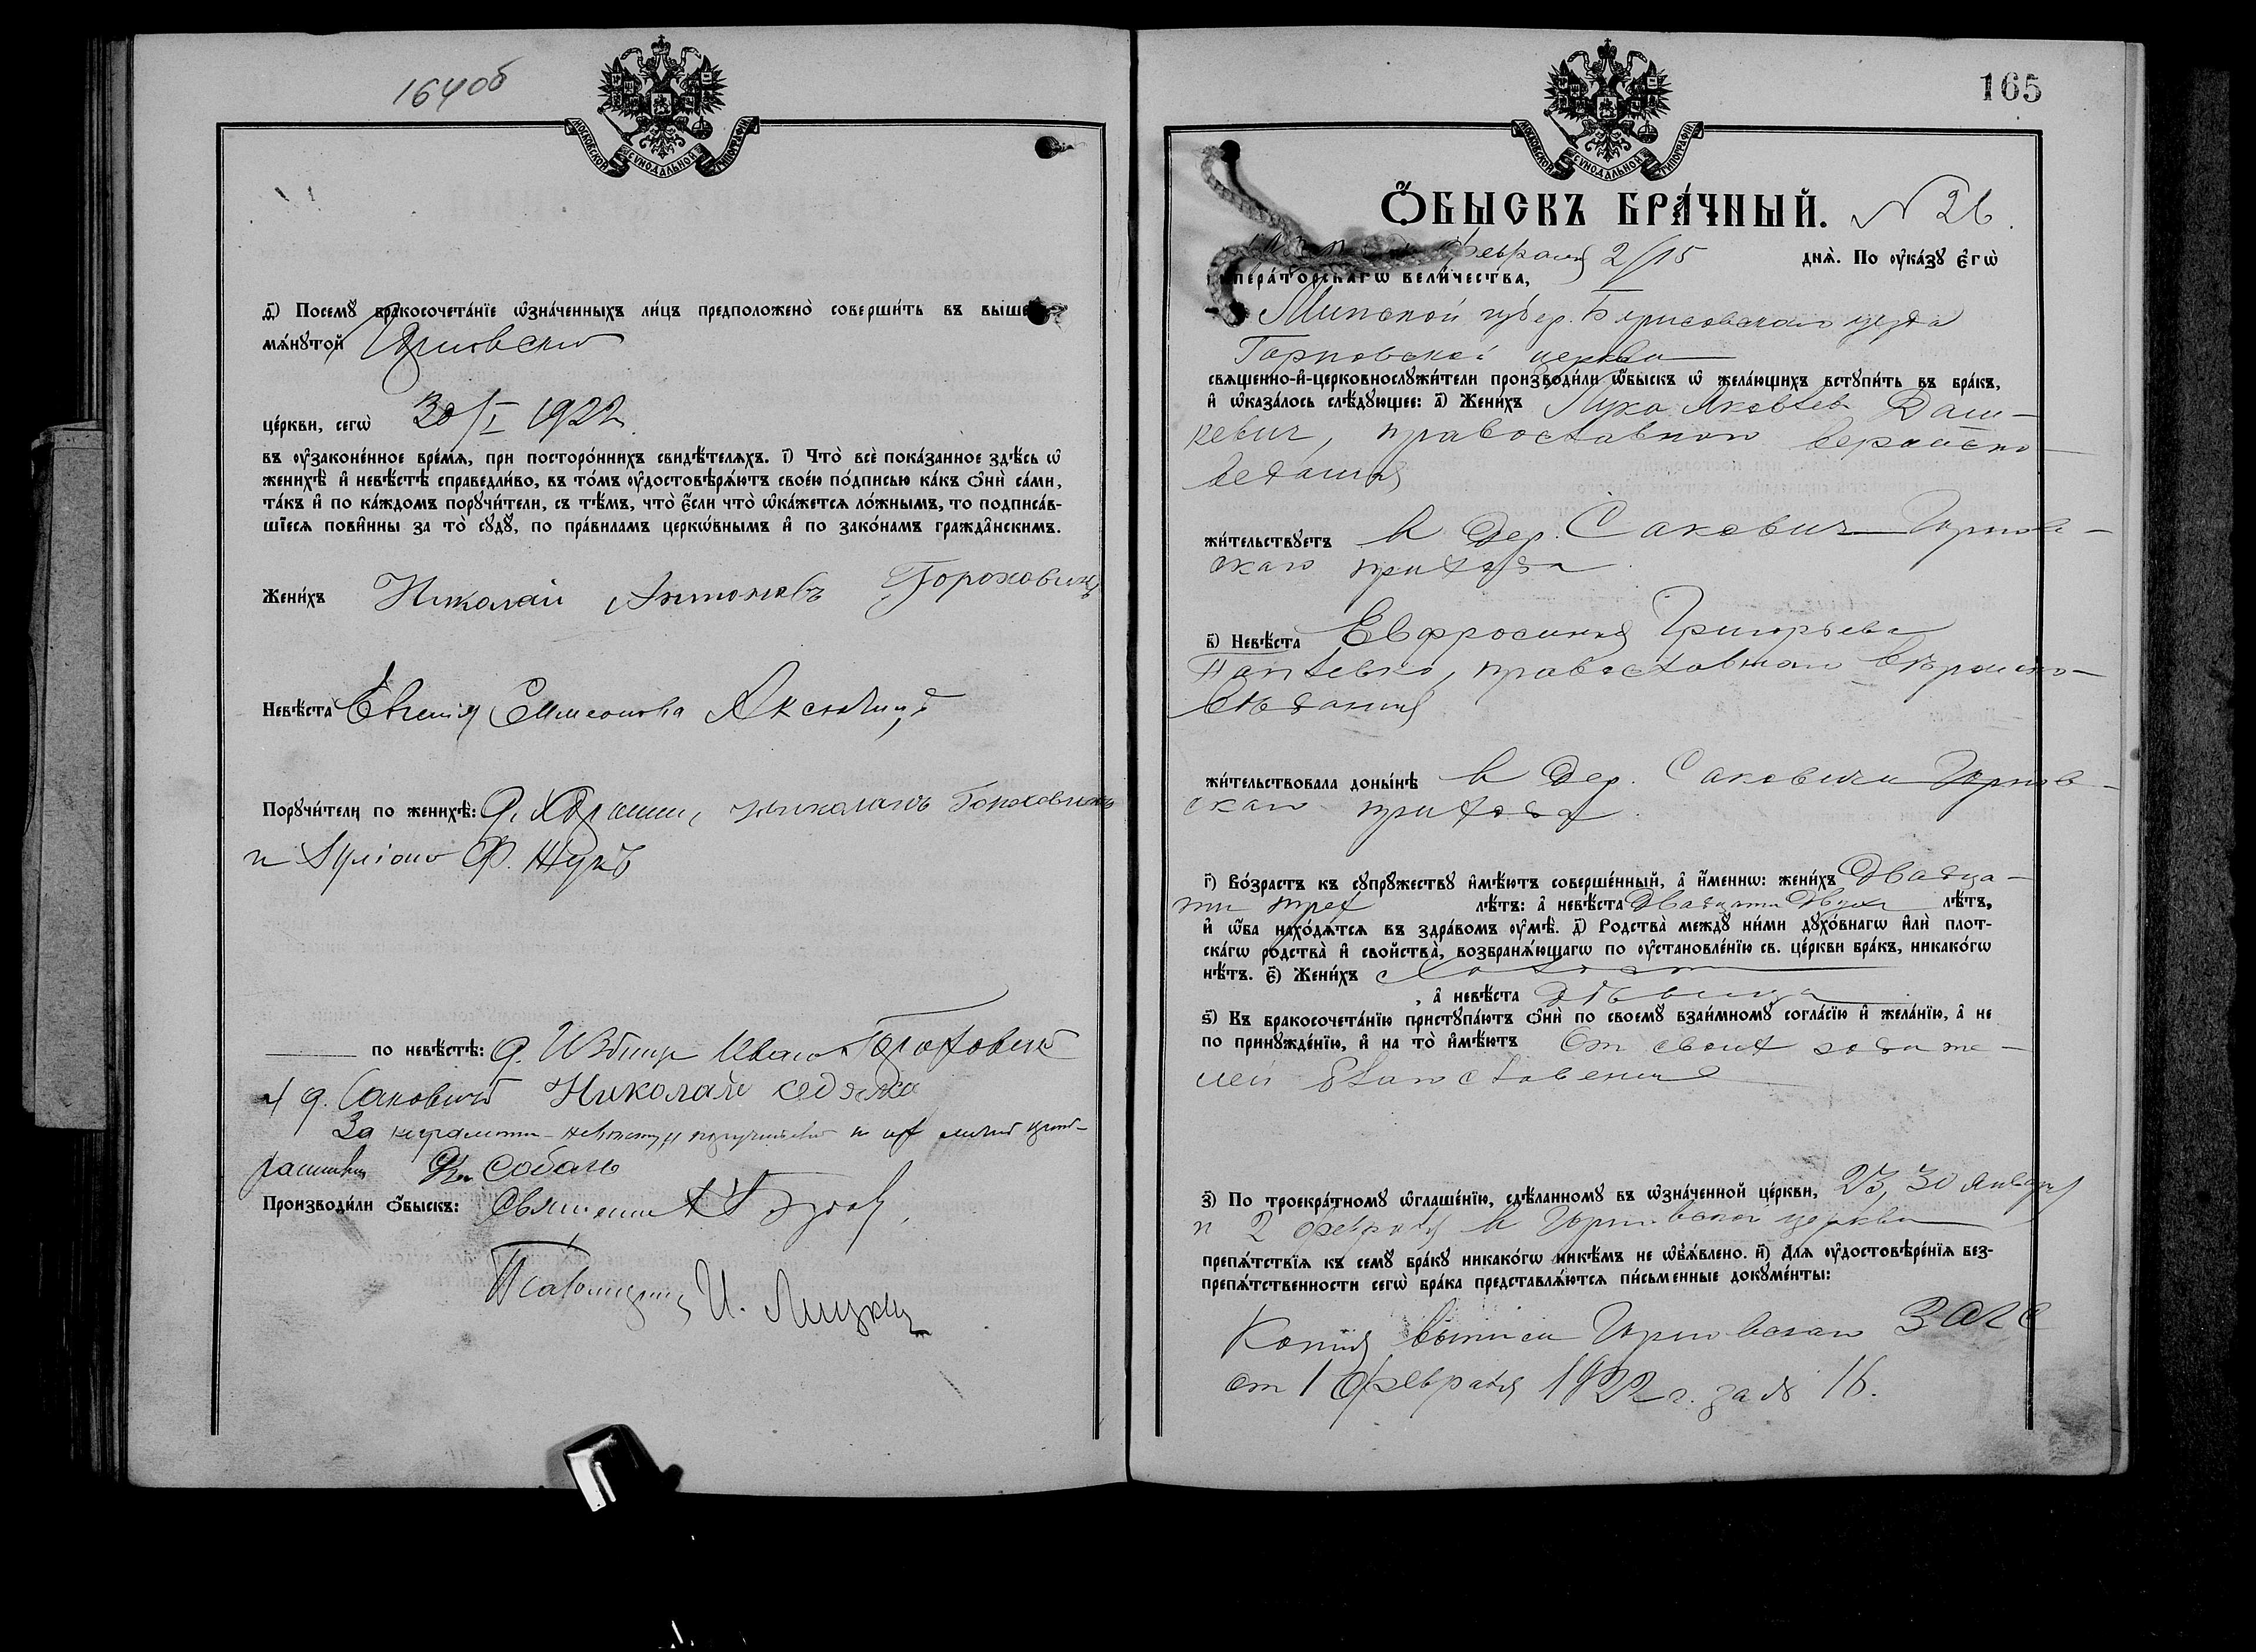 164 об
МОСКОВСКОЙ СѴНОДАЛЬНОЙ ТИПОГРАФІИ
д҃) Посемꙋ̀ бракосочета́нїе ѡ҆зна́ченныхъ ли́цъ предположено̀ соверши́ть въ выше
мѧ́нꙋтой
це́ркви, сегѡ̀ 30/I 1922
въ ᲂу҆законе́нное вре́мѧ, при посторо́ннихъ свидѣ́телѧхъ. і҃) Что̀ всѐ пока́занное здѣ́сь ѡ҆
женихѣ̀ и҆ невѣ́стѣ справедли́во, въ то́мъ ᲂу҆достовѣрѧ́ютъ свое́ю по́дписью ка́къ ѻ҆нѝ са́ми,
та́къ и҆ по ка́ждомъ порꙋчи́тели, съ тѣ́мъ, что̀ є҆́сли что̀ ѡ҆ка́жетсѧ ло́жнымъ, то подписа́в-
шїесѧ пови́нны за то̀ сꙋдꙋ̀, по пра́виламъ церко́внымъ и҆ по зако́намъ гражда̑нскимъ.
Жени́хъ Николай Антоновъ Гороховикъ
Невѣ́ста Евгенія Симеонова Аксючицъ
Порꙋчи́тели по женихѣ̀: д. Николай Гороховикъ
и Ф. Жукъ
по невѣ́стѣ: д. Иванъ Гороховикъ
и д. Саковичъ Николай
За неграмотн.
Собаль
Производи́ли ѻ҆́быскъ: Священникъ
Псаломщикъ И. Лицкец
165
МОСКОВСКОЙ СѴНОДАЛЬНОЙ ТИПОГРАФІИ
Ѻ҆́БЫСКЪ БРА́ЧНЫЙ. N 26.
февраля 2/15 днѧ̀. По ᲂу҆ка́зꙋ є҆гѡ̀
ператорскагѡ вели́чества,
Минской губер. Борисовского уезда
церкви
свѧще́нно-и҆-церковнослꙋжи́тели производи́ли ѻ҆́быскъ ѡ҆ жела́ющихъ встꙋпи́ть въ бра́къ,
и҆ ѡ҆каза́лось слѣ́дꙋющее: а҃) Жени́хъ Лука Яковлев Даш-
кевич, православного вероиспо-
ведания
жи́тельствꙋетъ в дер. Сакович
скаго прихода
в҃) Невѣ́ста Евфросиния Григорьева
православнаго вѣроиспо-
вѣдания
жи́тельствовала доны́нѣ в дер. Саковичи
скаго прихода
г҃) Во́зрастъ къ сꙋпрꙋ́жествꙋ и҆мѣ́ютъ соверше́нный, а҆ и҆́меннѡ: жени́хъ Двадца-
ти трех лѣ́тъ: а҆ невѣ́ста Двадцати двух лѣ́тъ,
и҆ ѻ҆́ба нахо́дѧтсѧ въ здра́вомъ ᲂу҆мѣ̀. д҃) Родства̀ междꙋ̀ ни́ми дꙋхо́внагѡ и҆лѝ плот-
ска́гѡ родства̀ и҆ сво́йства̀, возбранѧ́ющагѡ по ᲂу҆становле́нїю св. це́ркви бра́къ, никако́гѡ
нѣ́тъ. є҃) Жени́хъ холост
, а҆ невѣ́ста дѣвица
ѕ҃) Къ бракосочета́нїю пристꙋпа́ютъ ѻ҆нѝ по своемꙋ̀ взаи́мномꙋ согла́сїю и҆ жела́нїю, а҆ не
по принꙋжде́нїю, и҆ на то̀ и҆мѣ́ютъ От своих родите-
лей благословение
з҃) По троекра́тномꙋ ѡ҆глаше́нїю, сдѣ́ланномꙋ въ ѡ҆зна́ченной це́ркви, 23, 30 января
и 2 февраля в церкви
препѧ́тствїѧ къ семꙋ̀ бра́кꙋ никако́гѡ никѣ́мъ не ѡ҆б̾ѧ́влено. и҃) Длѧ ᲂу҆достовѣре́нїѧ без-
препѧ́тственности сегѡ̀ бра́ка представлѧ́ютсѧ пи́сьменные докꙋме́нты:
Копия выписи ЗАГС
от 1 февраля 1922 г. за № 16.